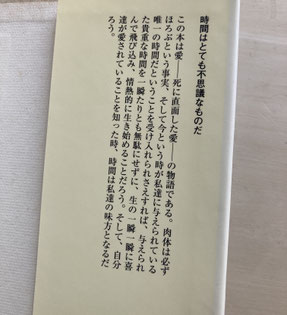 時間はとても不思議なものだ
この本は愛――死に直面した愛――の物語である。肉体は必ず
ほろぶという事実、そして今という時が私達に与えられている
唯一の時間だということを受け入れられさえすれば、与えられ
た貴重な時間を一瞬たりとも無駄にせずに、生の一瞬一瞬に喜
んで飛び込み、情熱的に生き始めることだろう。そして、自分
達が愛されていることを知った時、時間は私達の味方となるだ
ろう。